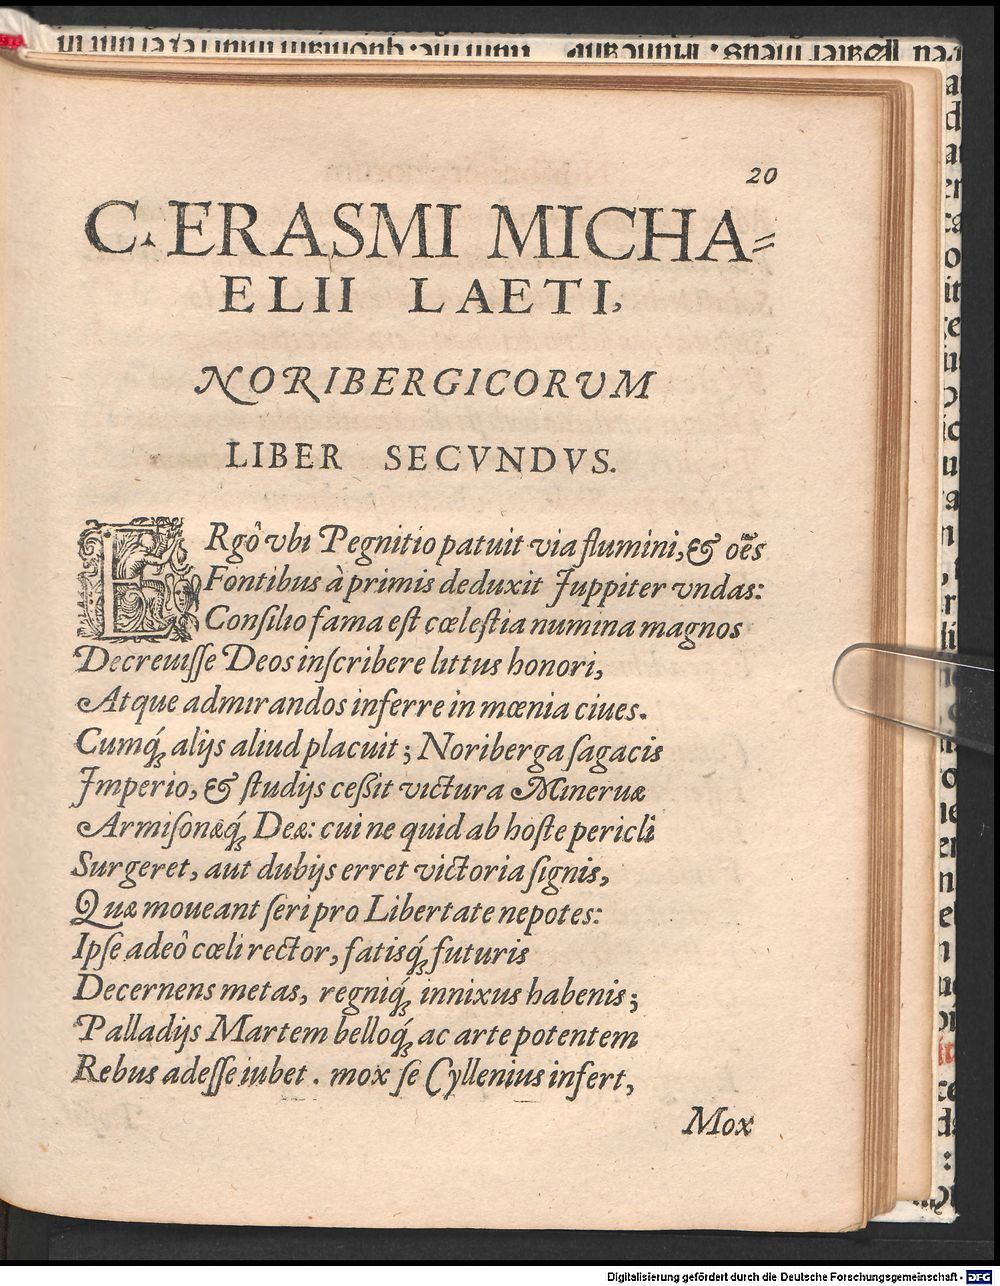 20
C. ERASMI MICHA=
ELII LAETI,
NORIBERGICORVM
LIBER SECVNDVS.
ERgô vbi Pegnitio patuit via flumini, & oēs
Fontibus à primis deduxit Juppiter vndas:
Consilio fama est cœlestia numina magnos
Decreuisse Deos inscribere littus honori,
Atque admirandos inferre in mœnia ciues.
Cumq́; alijs aliud placuit; Noriberga sagacis
Imperio, & studijs ceßit victura Mineruæ
Armisonæq́; Deæ: cui ne quid ab hoste pericli
Surgeret, aut dubijs erret victoria signis,
Quæ moueant seri pro Libertate nepotes:
Ipse adeô cœli rector, fatisq́; futuris
Decernens metas, regniq́; innixus habenis;
Palladijs Martem belloq́; ac arte potentem
Rebus adesse iubet. mox se Cyllenius infert,
Mox
Digitalisierung gefördert durch die Deutsche Forschungsgemeinschaft - DFG